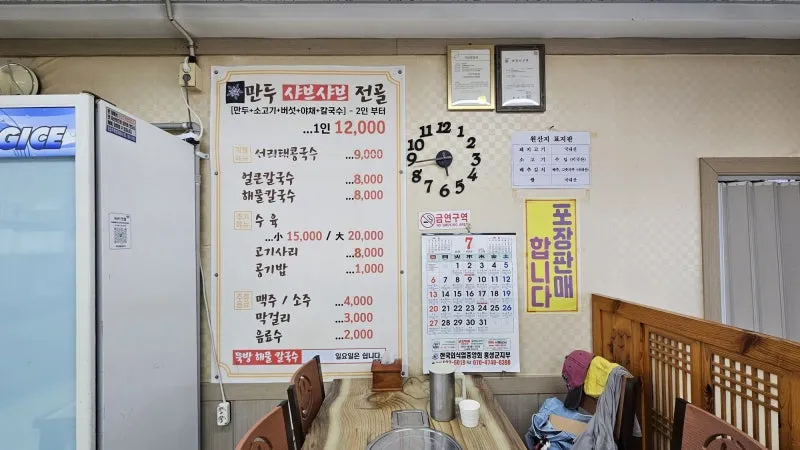 GICE
만두 샤브샤브 전골
[만두+소고기+버섯+야채+칼국수] - 2인 부터
...1인 12,000
서리태콩국수 ...9,000
얼큰칼국수 ...8,000
해물칼국수 ...8,000
수육
...小 15,000 / 大 20,000
고기사리 ...8,000
공기밥 ...1,000
맥주 / 소주 ...4,000
막걸리 ...3,000
음료수 ...2,000
뚝방 해물 칼국수
일요일은 쉽니다.
11 12 1
10 2
9 3
8 4
7 6 5
원산지 표지판
돼지고기 국내산
소고기
배추김치
쌀 국내산
금연구역
NO SMOKING AREA
포장판매
합니다
7
日 月 火 水 木 金 土
1 2 3 4 5
6 7 8 9 10 11 12
13 14 15 16 17 18 19
20 21 22 23 24 25 26
27 28 29 30 31
한국외식업중앙회 홍성군지부